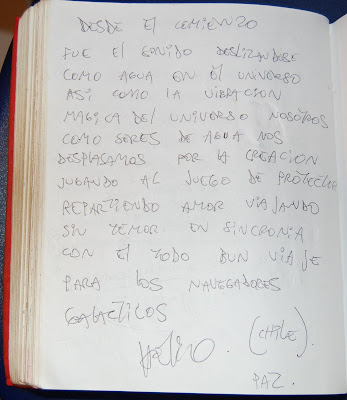 DESDE El COMIENZO
FUE El SONIDO DESLIZANDOSE
COMO AGUA EN El UNVERSO
ASI COMO LA VIBRACION
MAGICA DEl UNIVERSO NOSOTROS
COMO SERES DE AGUA NOS
DESPLASAMOS POR LA CREACION
JUGANDO AL JUEGO DE PROTECTOR
REPARTIENDO AMOR VIAJANDO
SIN TEMOR EN SINCRONIA
CON El TODO BUN VIAJE
PARA LOS NAVEGADORES
GALACTICOS
(CHILE)
PAZ.